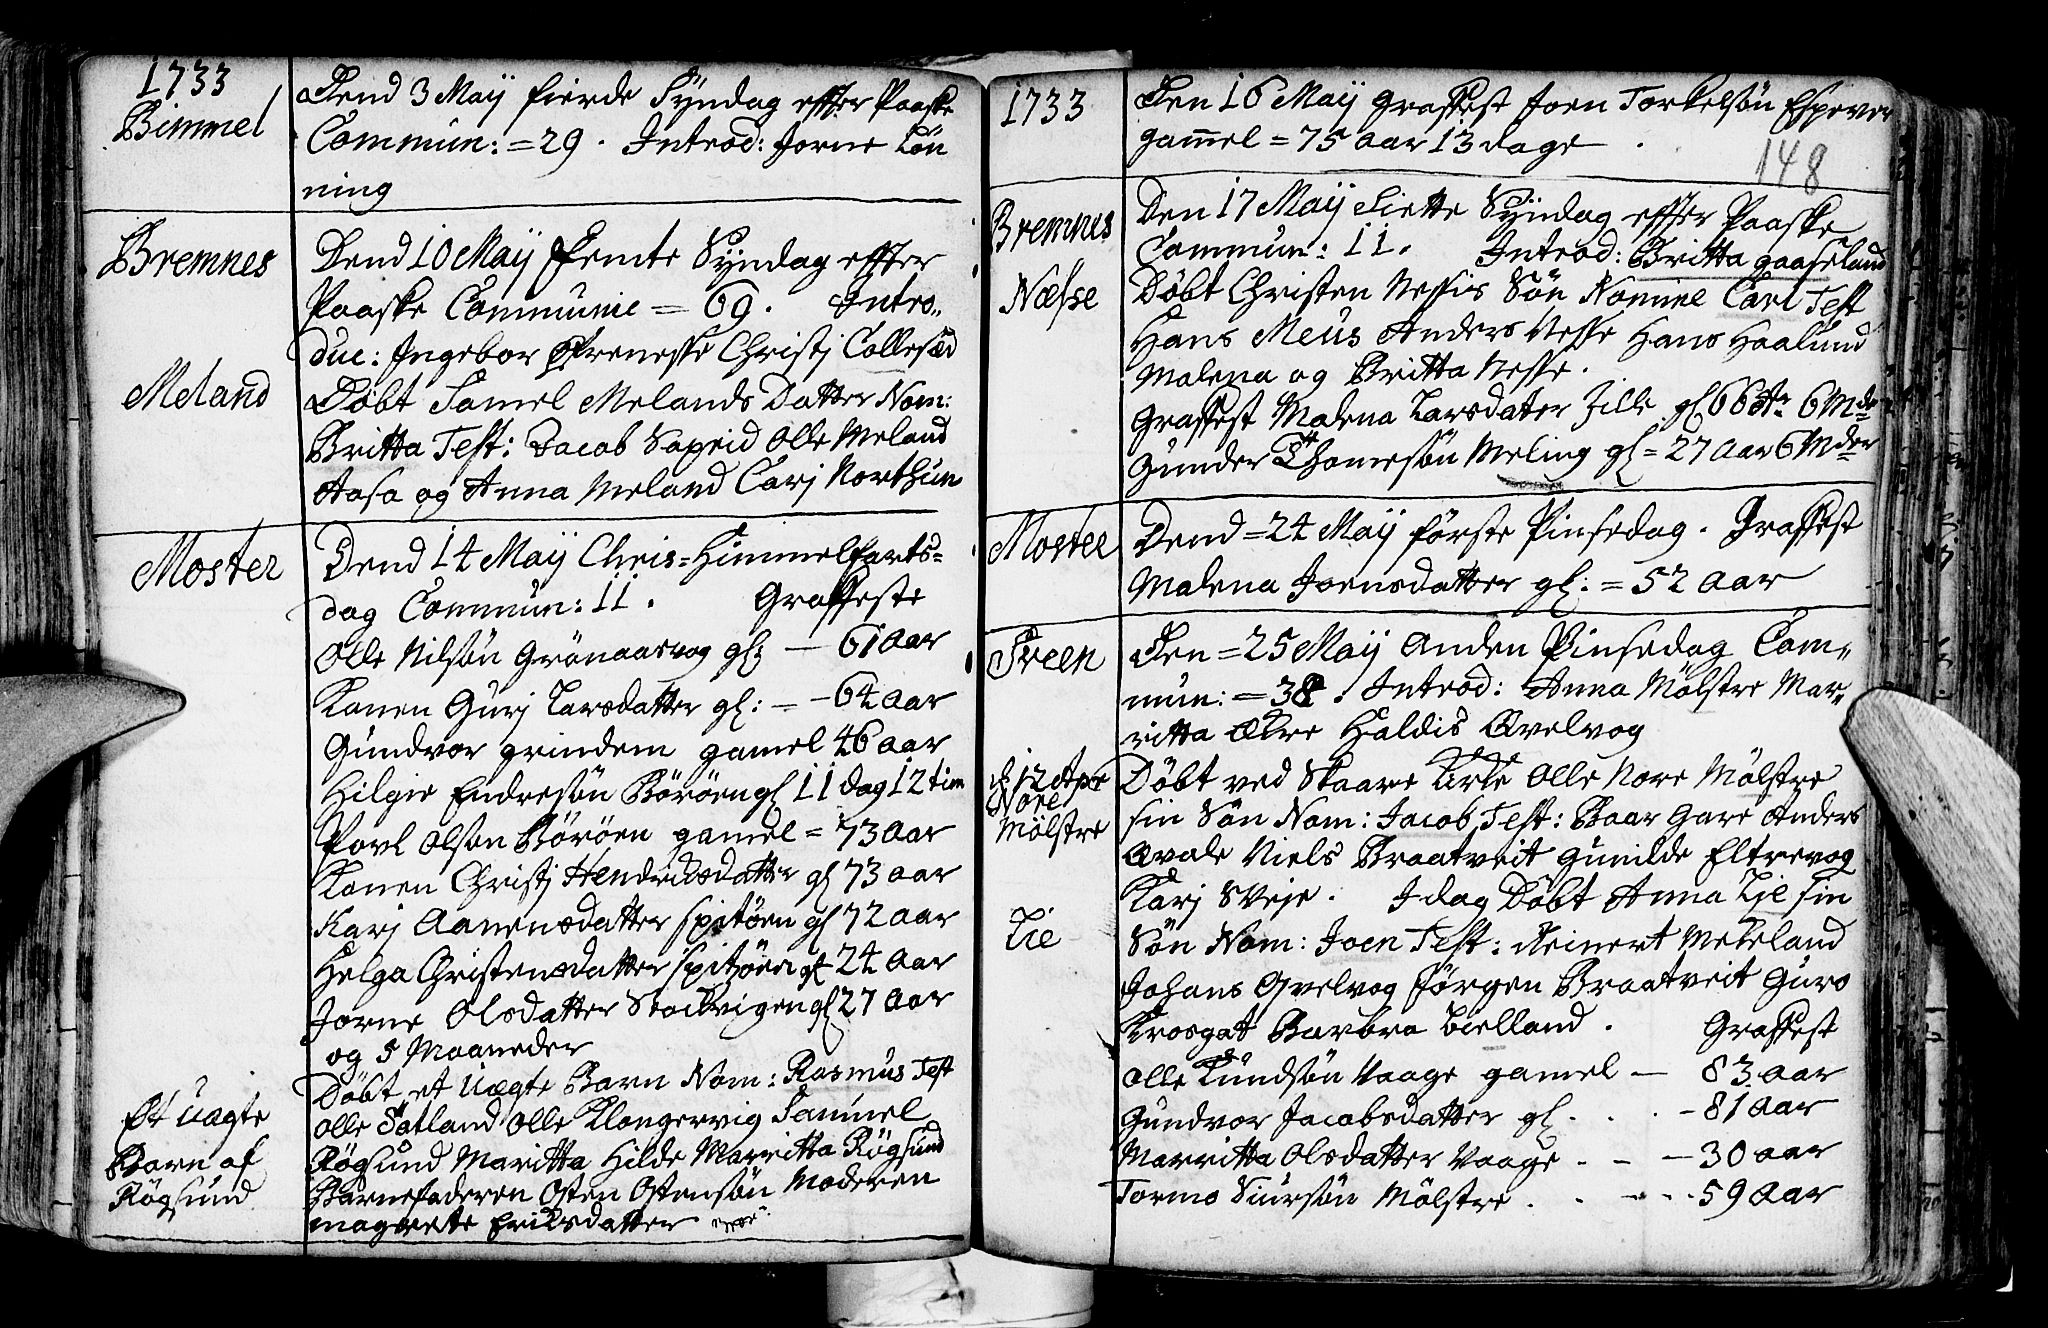 1733
Bimmel
Dend 3 Maij fierde Syndag effter Paaske
Commun: = 29. Introd: Jorne Løn
ning
Bremnes
Dend 10 Maij Femte Syndag effter
Paaske Communic = 69. Intro„
duc: Ingebor Christj Collesæd
Meland
Døbt Samel Melands Datter Nom:
Britta Test: Jacob Saxeid Olle Meland
Aasa og Anna Meland Carj Northun
Moster
Dend 14 Maij Chris=Himmelfarts=
dag Commun: 11. Graffeste
Olle Nilsøn Grønaasvog gl: — 61 Aar
Konen Gurj Larsdatter gl: — 64 aar
Gundvor grindem gamel 46 aar
Hilgie Endresøn Børøen gl 11 dag 12 tim
Povl Olsøn Børøen gamel = 73 Aar
Konen Christj Hendrichsdatter gl 73 aar
Karj Aanensdatter spitøen gl 72 aar
Helga Christensdatter spitzøen gl 24 aar
Jorne Olsdatter Stockvigen gl 27 Aar
og 5 Maaneder
Et uægte
Barn af
Røgsund
Døbt et Uægte Barn Nom: Rasmus Test
Olle Sætland Olle Klongervig Samuel
Røgsund Maritta Hilde Marritta Røgsund
Barnefaderen Osten Ostensøn Moderen
magrete Eriksdatter
1733
Den 16 Maij Graffest Joen Torkelsøn Espever
gam̄el = 75 aar 13 dage
148
Bremnes
Den 17 Maij Siette Syndag effter Paaske
Commun: 11. Introd: Britta gaaseland
Næsse
Døbt Christen Nessis Søn Nomine Carl Test
Hans Meus Anders Nesse Hans Haalund
Malena og Britta Nesse.
Graffest Malena Larsdater Zille gl 66 Ar 6 Mdr
Gunder Thomesøn Meling gl = 27 Aar 6 Mder
Moster
Dend = 24 Maij første Pinsedag. Graffest
Malena Joensdatter gl: = 52 Aar
Sveen
Den = 25 Maij Anden Pinsedag Com„
mun: = 38. Introd: Anna Mølstre Mar„
ritta Økre Haldis Qvelvog
d 12 Apr
Nore
Mølstre
Døbt ved Skaare Kirke Olle Nore Mølstre
sin Søn Nom: Jacob, Test: Baar Gare Anders
Qvale Niels Braatveit Gunilde Eltrevog
Karj Sveje. I dag Døbt Anna Lie sin
Lie
Søn Nom: Joen Test: Reinert Mekeland
Johans Qvelvog Jørgen Braatveit Guro
Krosgat Barbra Bielland. Graffest
Olle Knudsøn Vaage gamel — 83 aar
Gundvor Jacobsdatter gl. . . . - 81 Aar
Marritta Olsdatter Vaage - - - 30 aar
Tormo Siursøn Mølstre . . - - . 59 Aar